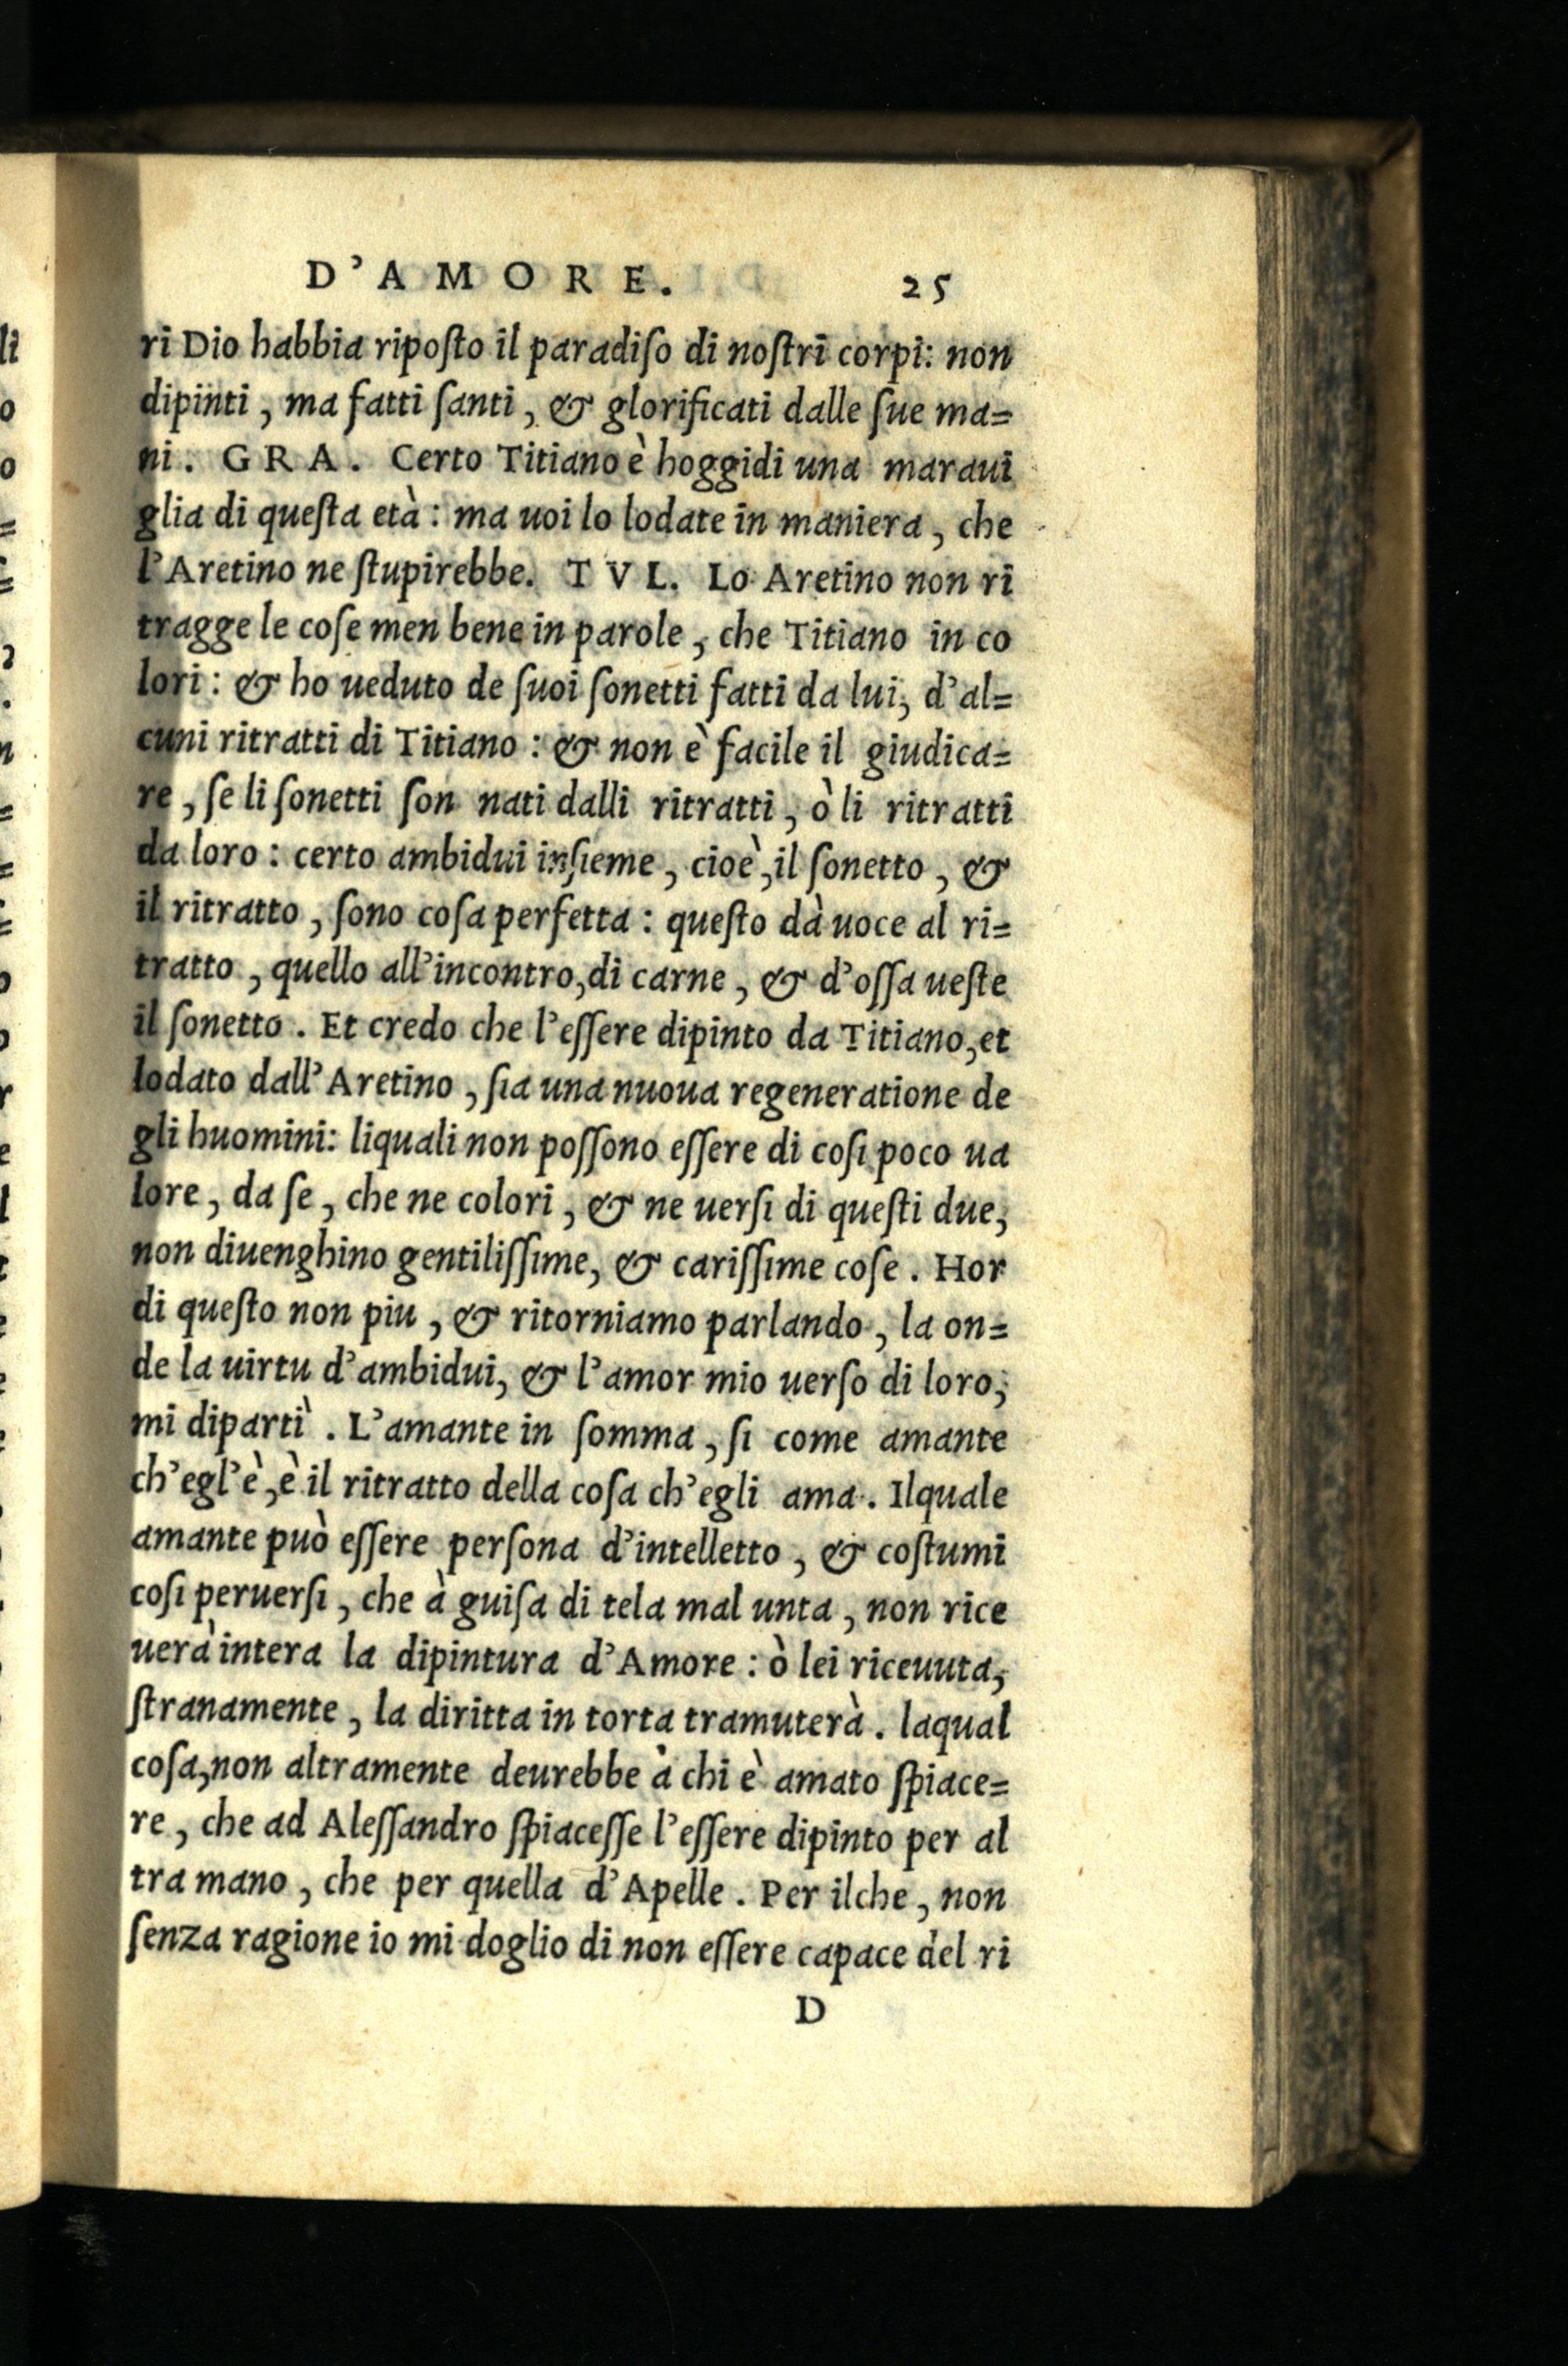 D'AMORE. 25
ri Dio habbia ripoſto il paradiſo di noſtri corpi: non
dipinti, ma fatti ſanti, & glorificati dalle ſue ma=
ni. GRA. Certo Titiano è hoggidi una maraui
glia di queſta età: ma uoi lo lodate in maniera, che
l'Aretino ne ſtupirebbe. TVL. Lo Aretino non ri
tragge le coſe men bene in parole, che Titiano in co
lori: & ho ueduto de ſuoi ſonetti fatti da lui, d'al=
cuni ritratti di Titiano: & non è facile il giudica=
re, ſe li ſonetti ſon nati dalli ritratti, ò li ritratti
da loro: certo ambidui inſieme, cioè, il ſonetto, &
il ritratto, ſono coſa perfetta: queſto dà uoce al ri=
tratto, quello all'incontro, di carne, & d'oſſa ueſte
il ſonetto. Et credo che l'eſſere dipinto da Titiano, et
lodato dall'Aretino, ſia una nuoua regeneratione de
gli huomini: liquali non poſſono eſſere di coſi poco ua
lore, da ſe, che ne colori, & ne uerſi di queſti due,
non diuenghino gentiliſſime, & cariſſime coſe. Hor
di queſto non piu, & ritorniamo parlando, la on=
de la uirtu d'ambidui, & l'amor mio uerſo di loro,
mi dipartì. L'amante in ſomma, ſi come amante
ch'egl'è, è il ritratto della coſa ch'egli ama. Ilquale
amante può eſſere perſona d'intelletto, & coſtumi
coſi peruerſi, che à guiſa di tela mal unta, non rice
uerà intera la dipintura d'Amore: ò lei riceuuta,
ſtranamente, la diritta in torta tramuterà. laqual
coſa, non altramente deurebbe à chi è amato ſpiace=
re, che ad Aleſſandro ſpiaceſſe l'eſſere dipinto per al
tra mano, che per quella d'Apelle. Per ilche, non
ſenza ragione io mi doglio di non eſſere capace del ri
D